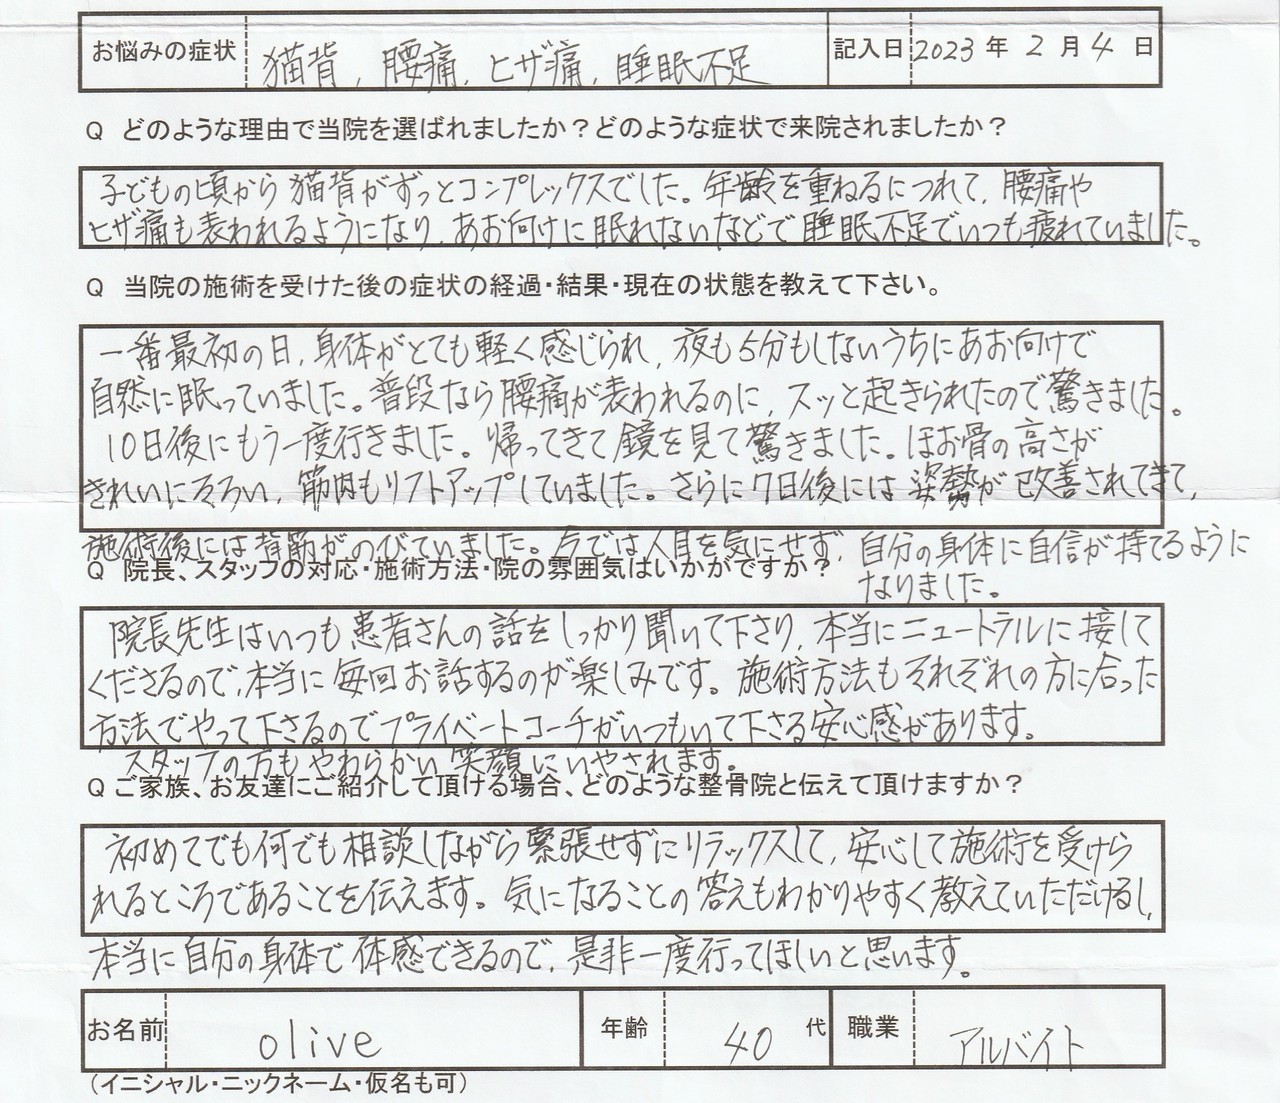 お悩みの症状 猫背,腰痛,ヒザ痛,睡眠不足 記入日 2023年 2月 4日
Q どのような理由で当院を選ばれましたか?どのような症状で来院されましたか?
子どもの頃から猫背がずっとコンプレックスでした。年齢を重ねるにつれて,腰痛や
ヒザ痛も表われるようになり,あお向けに眠れないなどで睡眠不足でいつも疲れていました。
Q 当院の施術を受けた後の症状の経過・結果・現在の状態を教えて下さい。
一番最初の日,身体がとても軽く感じられ,夜も5分もしないうちにあお向けで
自然に眠っていました。普段なら腰痛が表われるのに,スッと起きられたので驚きました。
10日後にもう一度行きました。帰ってきて鏡を見て驚きました。ほお骨の高さが
きれいにそろい,筋肉もリフトアップしていました。さらに7日後には姿勢が改善されてきて,
施術後には背筋がのびていました。今では人目を気にせず,自分の身体に自信が持てるように
なりました。
Q 院長、スタッフの対応・施術方法・院の雰囲気はいかがですか?
院長先生はいつも患者さんの話をしっかり聞いて下さり,本当にニュートラルに接して
くださるので,本当に毎回お話するのが楽しみです。施術方法もそれぞれの方に合った
方法でやって下さるのでプライベートコーチがいつもいて下さる安心感があります。
スタッフの方もやわらかい笑顔にいやされます。
Q ご家族、お友達にご紹介して頂ける場合、どのような整骨院と伝えて頂けますか?
初めてでも何でも相談しながら緊張せずにリラックスして,安心して施術を受けら
れるところであることを伝えます。気になることの答えもわかりやすく教えていただけるし,
本当に自分の身体で体感できるので,是非一度行ってほしいと思います。
お名前 olive 年齢 40 代 職業 アルバイト
(イニシャル・ニックネーム・仮名も可)